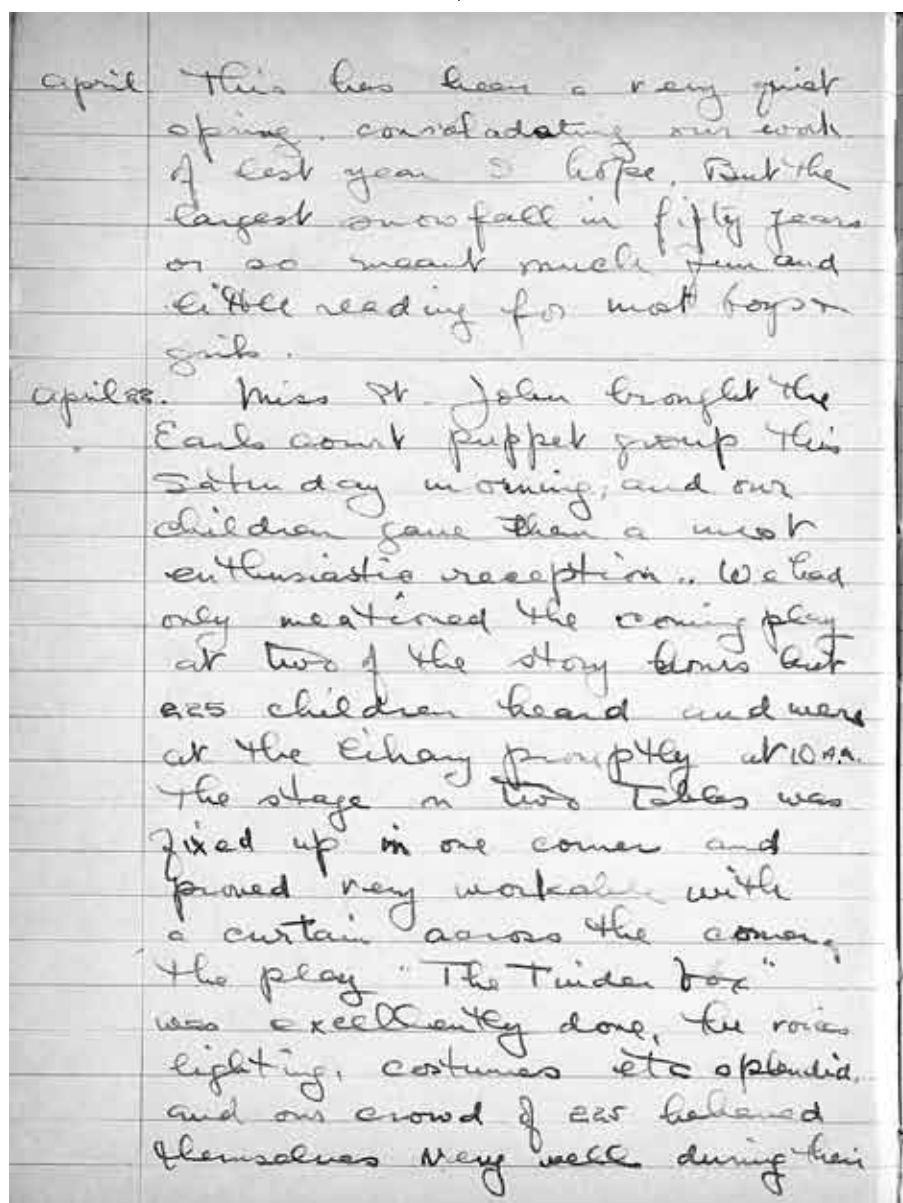 April This has been a very quiet
spring. consoladating our work
of last year I hope. But the
largest snowfall in fifty years
or so meant much fun and
little reading for most boys +
girls.
April 22. Miss St. John brought the
Earlscourt puppet group this
Saturday morning, and our
children gave them a most
enthusiastic reception.. We had
only mentioned the coming play
at two of the story hours but
225 children heard and were
at the library promptly at 10 A.M.
The stage on two tables was
fixed up in one corner and
proved very workable with
a curtain across the corner.
The play "The Tinder box"
was excellently done, the voices
lighting, costumes etc splendid.
and our crowd of 225 behaved
themselves very well during their